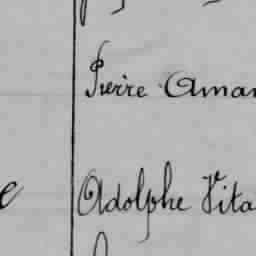 Pierre Aman
e
Adolphe Vita